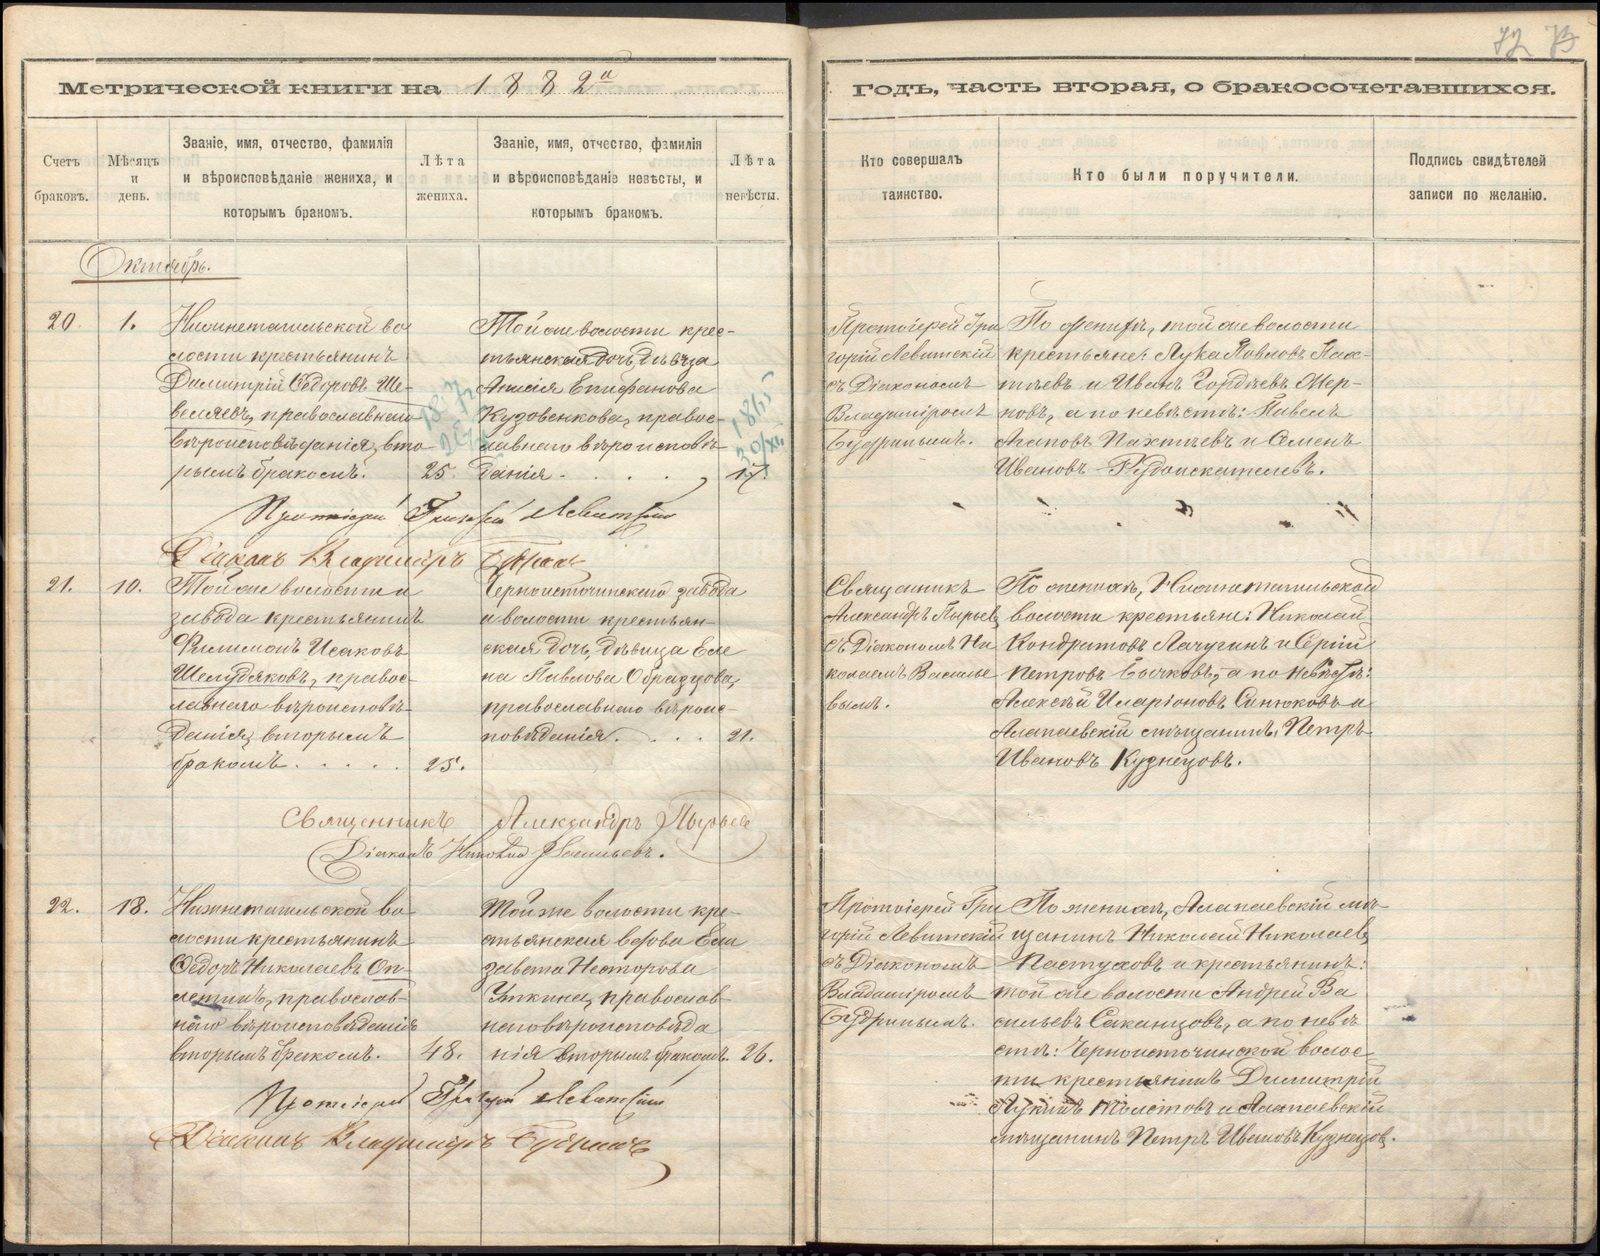 72 73
Метрической книги на 1882й
Годъ, часть вторая, о бракосочетавшихся.
Счетъ
браковъ.
Мѣсяцъ
и
день.
Званіе, имя, отчество, фамилія
и вѣроисповѣданіе жениха, и
которымъ бракомъ.
Лѣта
жениха.
Званіе, имя, отчество, фамилія
и вѣроисповѣданіе невѣсты, и
которымъ бракомъ.
Лѣта
невѣсты.
Кто совершалъ
таинство.
Кто были поручители.
Подпись свидѣтелей
записи по желанію.
Октябрь.
20.
1.
Нижнетагильской во
лости крестьянинъ
Димитрій Ѳедоровъ Ше-
велевъ, православнаго
вѣроисповѣданія, вто
рымъ бракомъ.
25.
Той же волости крес-
тьянская дочь, дѣвица
Анисія Епифанова
Кузовенкова, правос-
лавнаго вѣроисповѣ
данія . . . .
1865
17.
Протоіерей Гри
горій Левитскій
съ Діакономъ
Владиміромъ
Будринымъ.
По женихѣ, той же волости
крестьяне: Лука Павловъ Пах-
тѣевъ и Иванъ Гордѣевъ Жер-
новъ, а по невѣстѣ: Павелъ
Агаповъ Пахтѣевъ и Семенъ
Ивановъ Рудоискателевъ.
Протоіерей Григорій Левитскій
Діаконъ Владиміръ Будринъ
21.
10.
Той же волости и
завода крестьянинъ
Филимонъ Исаковъ
Шелудяковъ, правос-
лавнаго вѣроисповѣ-
данія, вторымъ
бракомъ . . . .
25.
Черноисточинскаго завода
и волости крестьян-
ская дочь, дѣвица Еле
на Павлова Образцова,
православнаго вѣроис-
повѣданія . . . .
21.
Священникъ
Александръ Пырьевъ
съ Діакономъ Ни
колаемъ Василье
вымъ.
По женихѣ, Нижнетагильской
волости крестьяне: Николай
Кондратовъ Лачугинъ и Сергій
Петровъ Бочковъ, а по невѣстѣ:
Алексѣй Иларіоновъ Синюковъ и
Алапаевскій мѣщанинъ, Петръ
Ивановъ Кузнецовъ.
Священникъ Александръ Пырьевъ
Діаконъ Николай Васильевъ.
22.
18.
Нижнетагильской во-
лости крестьянинъ
Ѳедоръ Николаевъ Оп-
летинъ, православ-
наго вѣроисповѣданія
вторымъ бракомъ.
48.
Той же волости кре-
стьянская вдова Ели
завета Несторова
Уткина, православ-
наго вѣроисповѣда
нія вторымъ бракомъ.
26.
Протоіерей Гри
горій Левитскій
съ Діакономъ
Владиміромъ
Будринымъ.
По женихѣ, Алапаевскій мѣ-
щанинъ Николай Николаевъ
Пастуховъ и крестьянинъ:
той же волости Андрей Ва
сильевъ Саканцовъ, а по невѣ
стѣ: Черноисточинской волос-
ти крестьянинъ Димитрій
Лукинъ Толстовъ и Алапаевскій
мѣщанинъ Петръ Ивановъ Кузнецовъ.
Протоіерей Григорій Левитскій
Діаконъ Владиміръ Будринъ